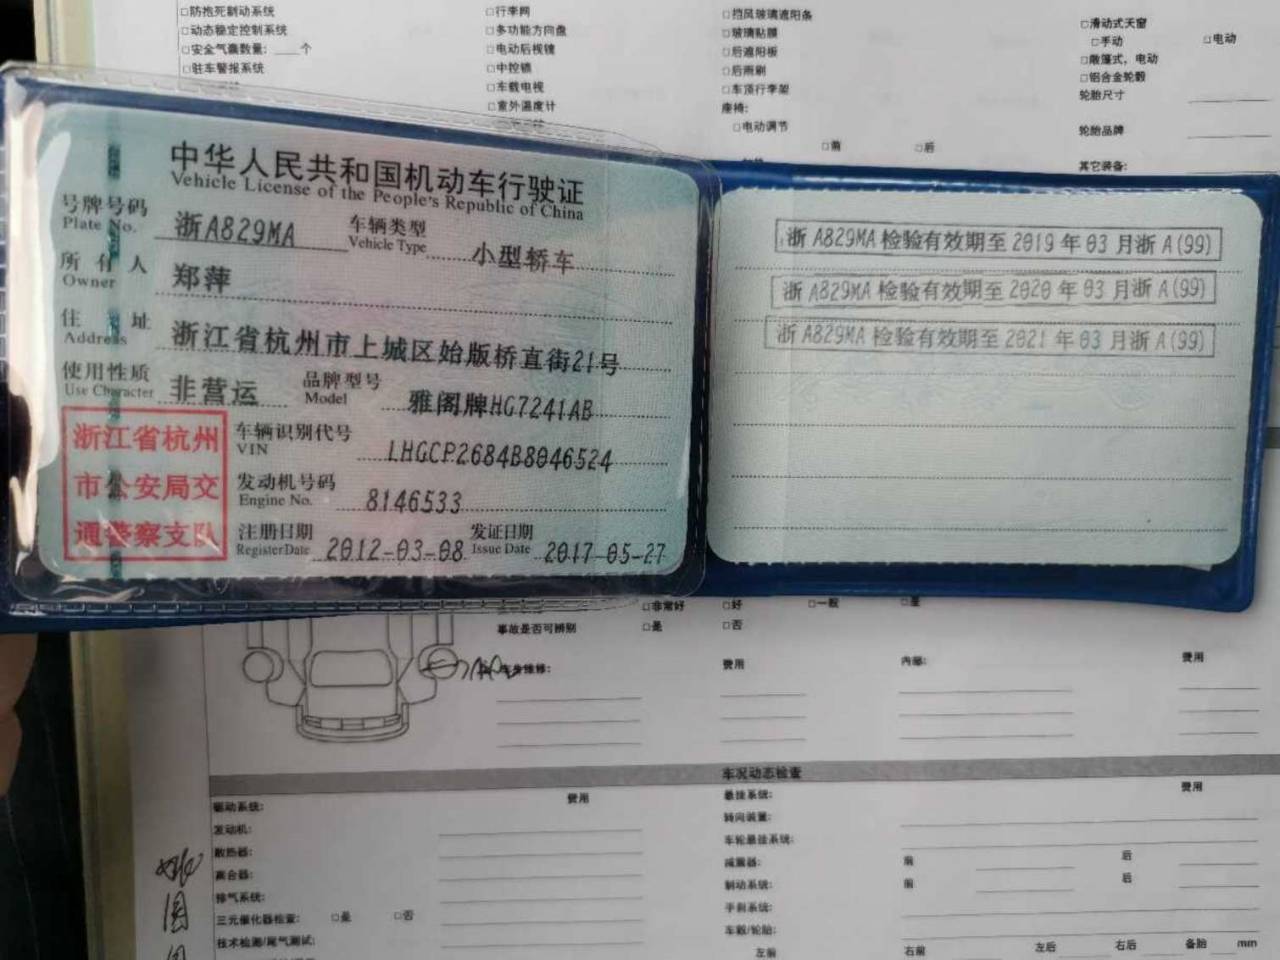 □防抱死制动系统
□动态稳定控制系统
□安全气囊数量:____个
□驻车警报系统
□行李网
□多功能方向盘
□电动后视镜
□中控锁
□车载电视
□室外温度计
□挡风玻璃遮阳条
□玻璃贴膜
□后遮阳板
□后雨刷
□车顶行李架
座椅:
□电动调节
□前 □后
□滑动式天窗
□手动 □电动
□敞篷式，电动
□铝合金轮毂
轮胎尺寸
轮胎品牌
其它装备:
中华人民共和国机动车行驶证
Vehicle License of the People's Republic of China
号牌号码 浙A829MA 车辆类型 小型轿车
Plate No. Vehicle Type
所有人 郑萍
Owner
住址 浙江省杭州市上城区始版桥直街21号
Address
使用性质 非营运 品牌型号 雅阁牌HG7241AB
Use Character Model
浙江省杭州
市公安局交
通警察支队
车辆识别代号 LHGCP2684B8046524
VIN
发动机号码 8146533
Engine No.
注册日期 2012-03-08 发证日期 2017-05-27
Register Date Issue Date
浙A829MA检验有效期至2019年03月浙A(99)
浙A829MA检验有效期至2020年03月浙A(99)
浙A829MA检验有效期至2021年03月浙A(99)
□非常好 □好 □一般 □差
事故是否可辨别 □是 □否
费用 内部: 费用
车况动态检查
驱动系统: 费用
发动机:
散热器:
离合器:
排气系统:
三元催化器检查: □是 □否
技术检测/尾气测试:
悬挂系统: 费用
转向装置:
车轮悬挂系统:
减震器: 前 后
制动系统: 前 后
手刹系统:
车毂/轮胎:
左前 右前 左后 右后 备胎 mm